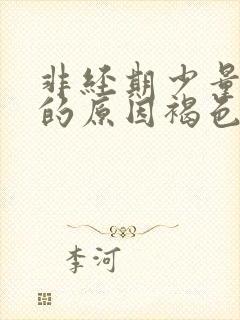 非经期少量
的原因褐色
李河